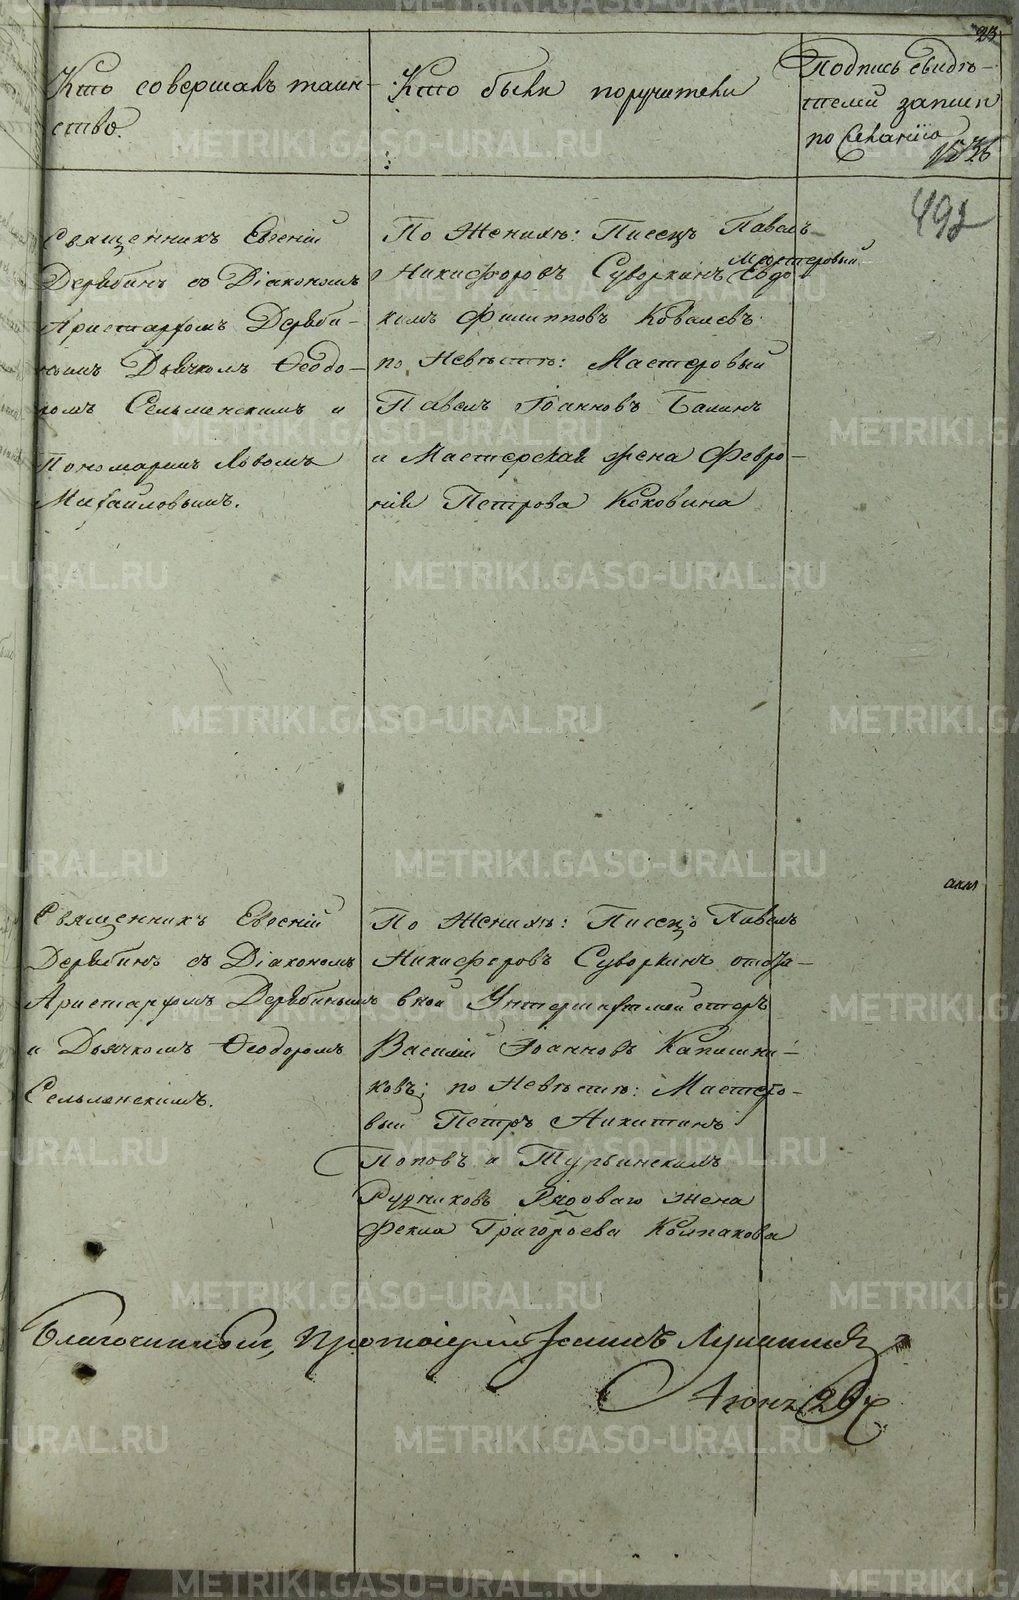 23
Кто совершалъ таин-
ство.
Кто были поручители
Подпись свидѣ-
телей запи
по желанію
492
Священникъ Евгеній
Дерябинъ съ Діакономъ
Аристархомъ Деряби-
нымъ Дьячкомъ Ѳеодо-
ромъ Сельменскимъ и
Пономаремъ Іовомъ
Михайловымъ.
По Женихѣ: Писецъ Павелъ
Никифоровъ Суворкинъ Мастеровый Евдо-
кимъ Филипповъ Ковалевъ
по Невѣстѣ: Мастеровый
Павелъ Іоанновъ Балинъ
и Мастерская жена Февро-
нія Петрова Коковина
Священникъ Евгеній
Дерябинъ съ Діакономъ
Аристархомъ Дерябинымъ
и Дьячкомъ Ѳеодоромъ
Сельменскимъ.
По Женихѣ: Писецъ Павелъ
Никифоровъ Суворкинъ отста-
вной Унтершихтмейстеръ
Василій Іоанновъ Калашни-
ковъ; по Невѣстѣ: Мастеро-
вый Петръ Никитинъ
Поповъ и Турьинскихъ
Рудниковъ Рядоваго жена
Фекла Григорьева Колпакова
Благочинный, Протоіерей Іоаннъ Лукановъ
METRIKI.GASO-URAL.RU